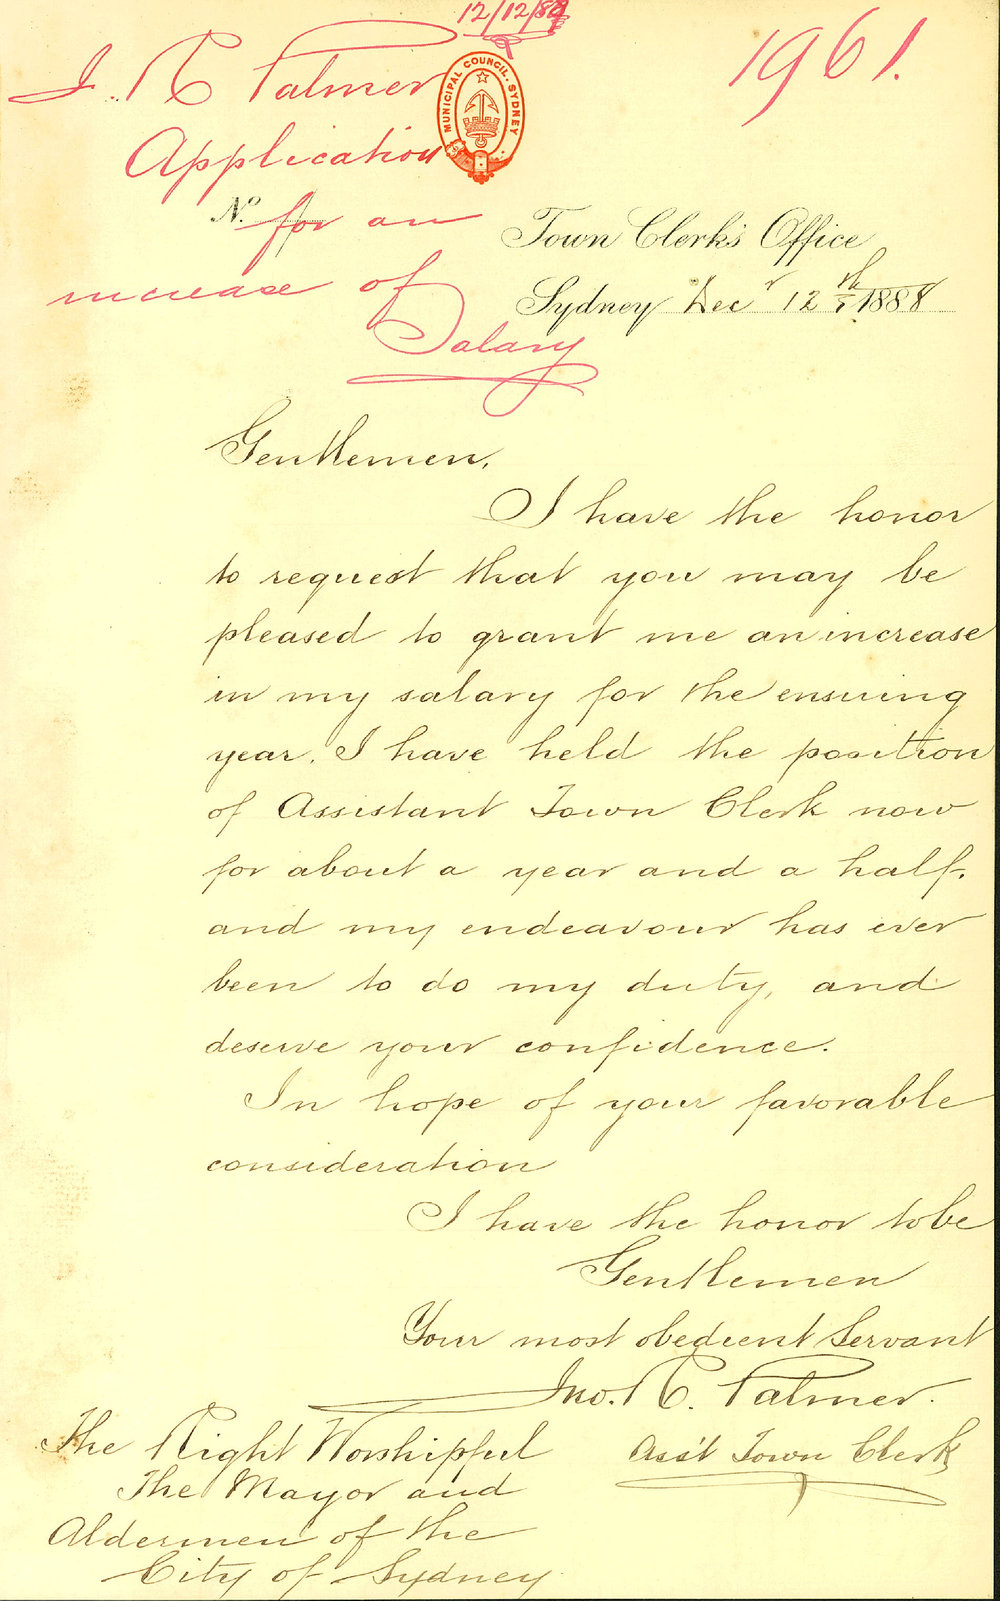 12/12/88
1961.
J. R Palmer
MUNICIPAL COUNCIL. SYDNEY
Application
No. for an
increase of
Salary
Town Clerk's Office
Sydney Decr 12th 1888
Gentlemen,
I have the honor
to request that you may be
pleased to grant me an increase
in my salary for the ensuing
year. I have held the position
of Assistant Town Clerk now
for about a year and a half.
and my endeavour has ever
been to do my duty, and
deserve your confidence.
In hope of your favorable
consideration
I have the honor to be
Gentlemen
Your most obedient Servant
Jno. R. Palmer.
Ass't Town Clerk
The Right Worshipful
The Mayor and
Aldermen of the
City of Sydney